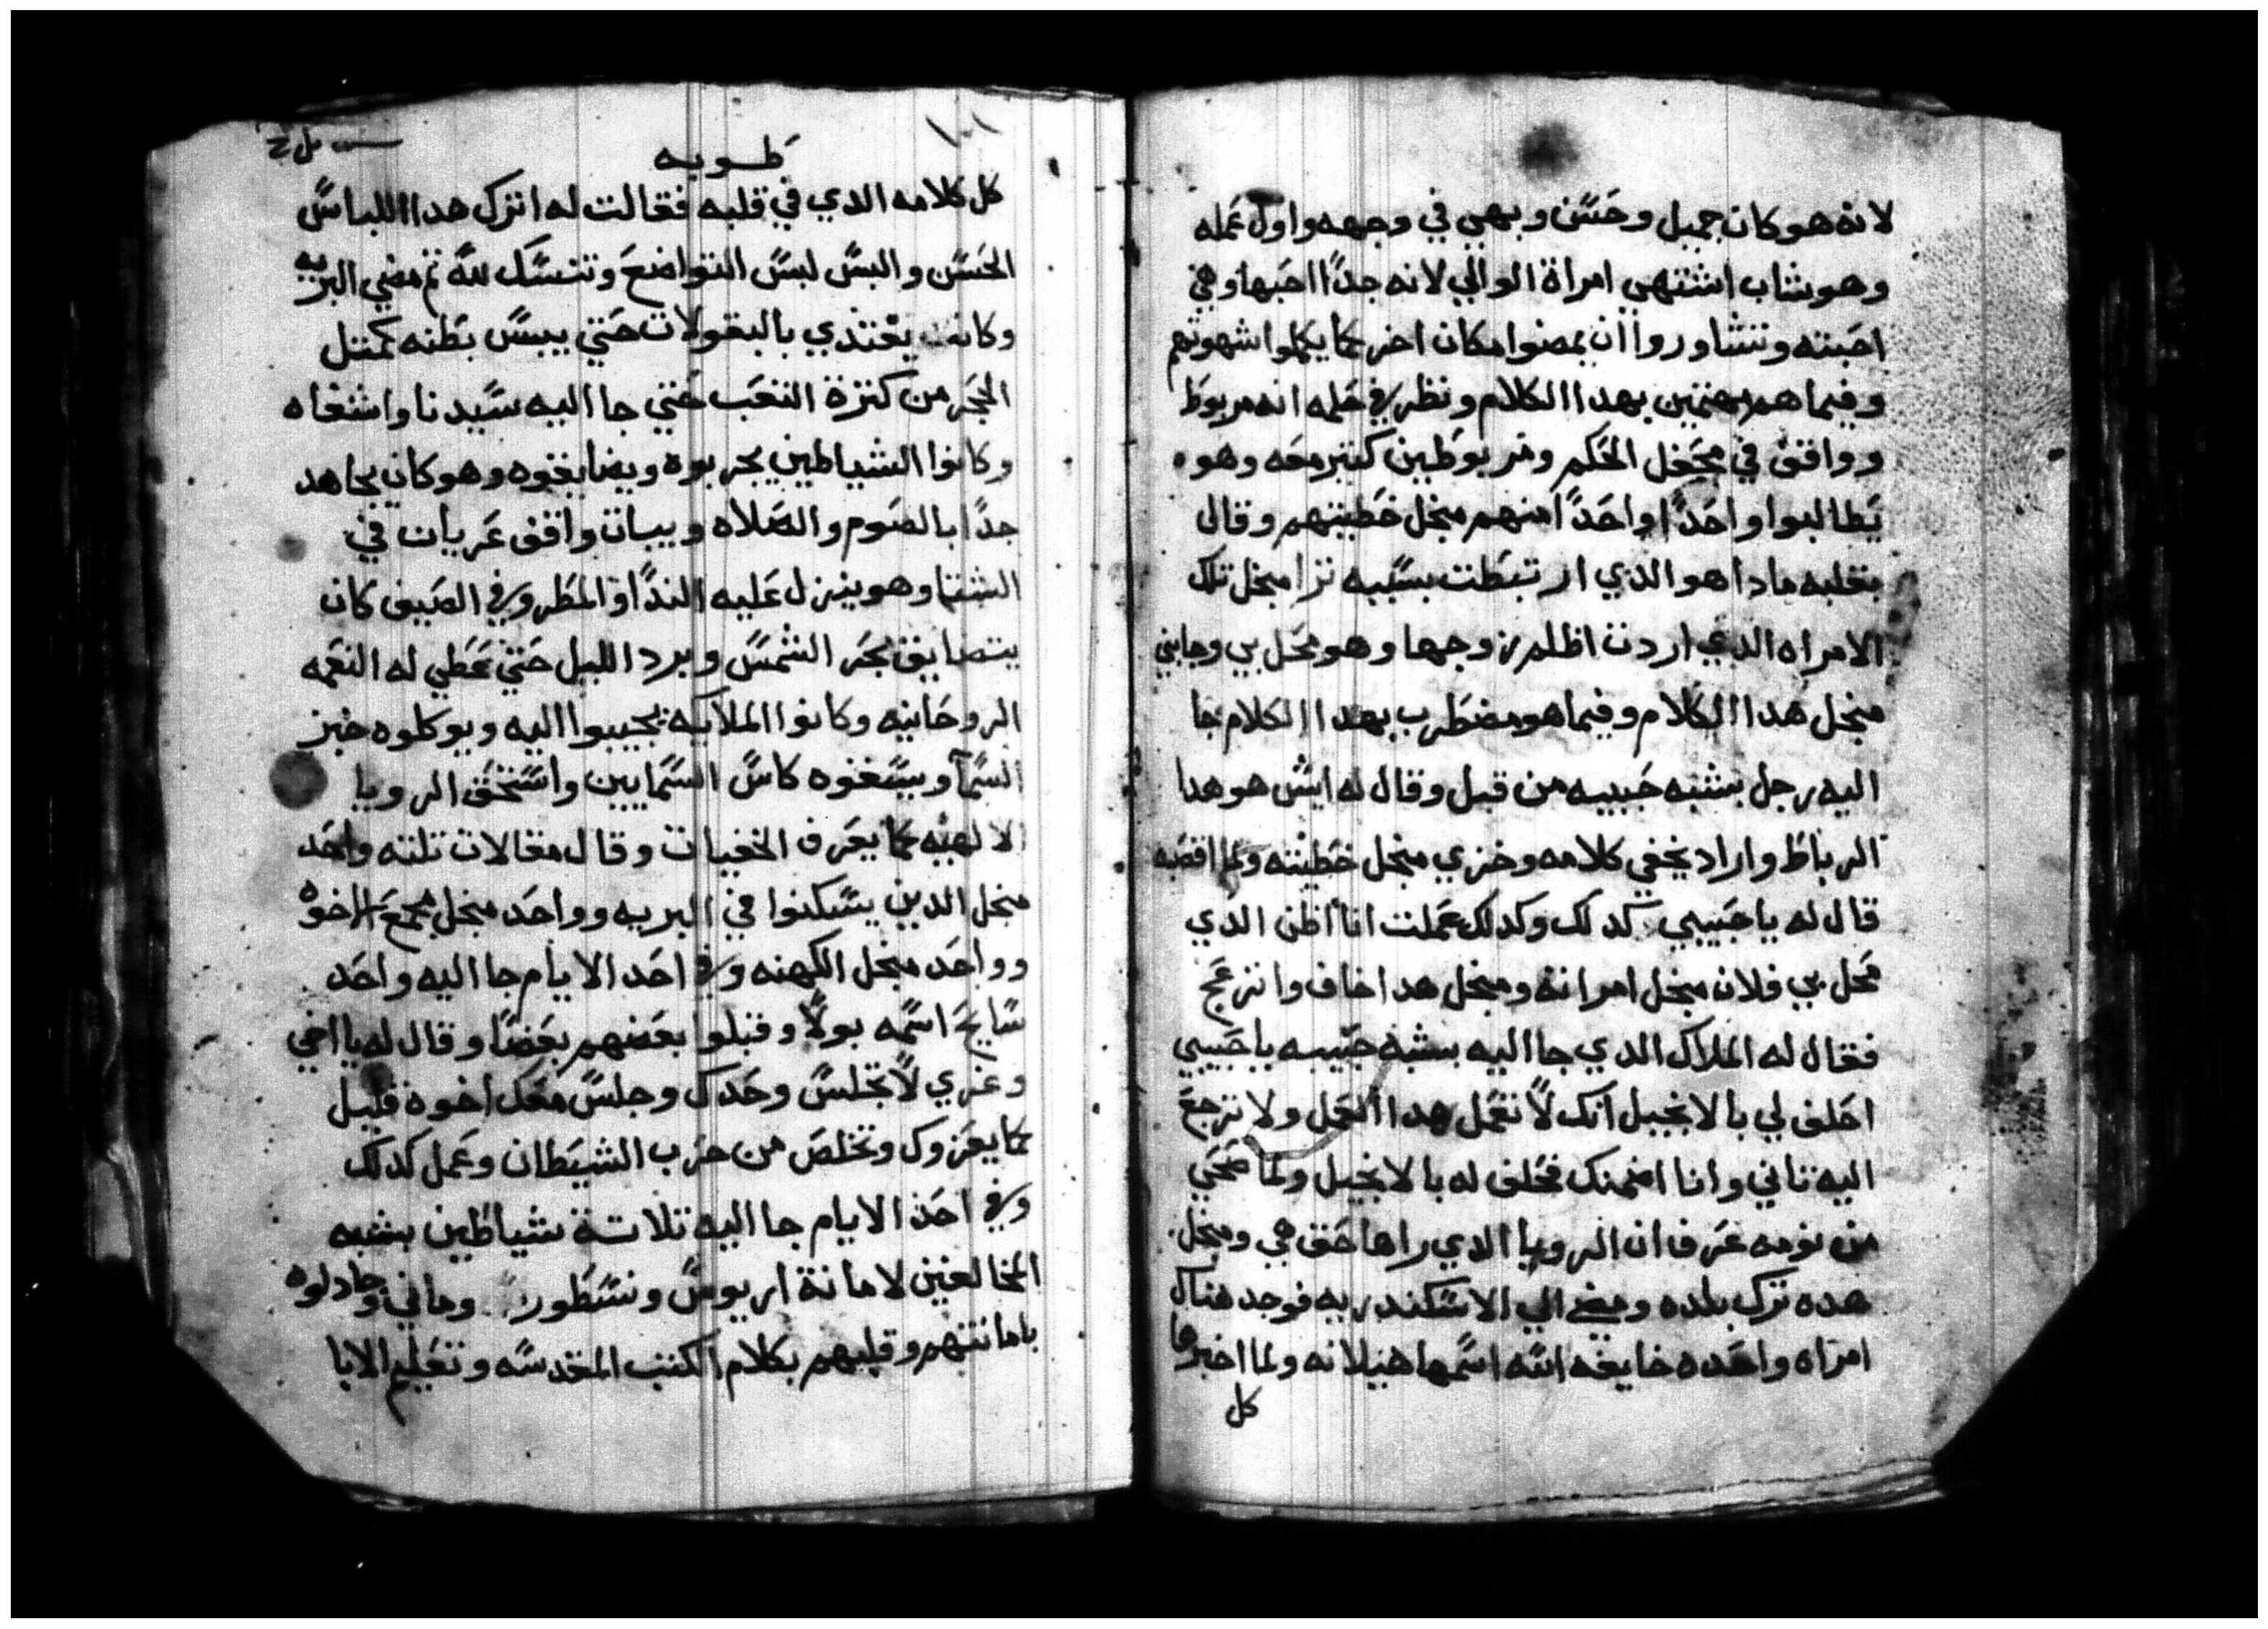 لانه هو كان جميل وحسن وبهي في وجهه واول عمله
وهو شاب اشتهي امراة الوالي لانه جدًا احبها وهي
احبته وتشاوروا ان يمضوا مكان اخر كما يكملوا شهوتهم
وفيما هم مهتمين بهدا الكلام ونظر في حلمه انه مربوط
وواقف في محفل الحكم ومربوطين كتير معه وهو
يطالبوا واحدًا واحدًا منهم منجل خطيتهم وقال
بقلبه مادا هو الدي ارتبطت بسببه ترا منجل تلك
الامراه الدي اردت اظلم زوجها وهو محل بي وجابني
منجل هدا الكلام وفيما هو مضطرب بهدا الكلام جا
اليه رجل بشبه حبيبه من قبل وقال له ايش هو هدا
الرباط واراد يخفي كلامه وخزي منجل خطيته ولما اقصبه
قال له يا حبيبي كدلك وكدلك عملت انا اظن الدي
محل بي فلان منجل امراتة ومنجل هدا اخاف وانزعج
فقال له الملاك الدي جا اليه بشبه حبيبه يا حبيبي
احلف لي بالانجيل انك لا تعمل هدا العمل ولا ترجع
اليه تاني وانا اضمنك فحلف له بالانجيل ولما صحي
من نومه عرف ان الرويا الدي راها حق هي ومنجل
هده ترك بلده ومضي الي الاسكندريه فوجد هناك
امراه واحده خايفه الله اسمها هيلانه ولما اخبرها
كل
١٠١
طوبيه
كل كلامه الدي في قلبه فقالت له اترك هدا اللباس
الحسن والبس لبس التواضع وتنسك لله تم مضي البريه
وكان يغتدي بالبقولات حتي يبس بطنه كمتل
الحجر من كترة التعب حتي جا اليه سيدنا واشفاه
وكانوا الشياطين يجربوه ويضايقوه وهو كان يجاهد
جدًا بالصوم والصلاه ويبات واقف عريان في
الشتا وهو ينزل عليه الندا والمطر وفي الصيف كان
يتضايق بحر الشمس وبرد الليل حتي عطي له النعمه
الروحانيه وكانوا الملايكه يجيبوا اليه ويوكلوه خبز
السما ويسقوه كاس السمايين واستحق الرويا
الالهيه كما يعرف الخفيات وقال مقالات تلته واحد
منجل الدين يسكنوا في البريه وواحد منجل مجمع الاخوه
وواحد منجل الكهنه وفي احد الايام جا اليه واحد
سايح اسمه بولا وقبلوا بعضهم بعضا وقال له يا اخي
وعزي لا تجلس وحدك وجلس معك اخوه قليل
كما يعزوك وتخلص من حرب الشيطان وعمل كدلك
وفي احد الايام جا اليه تلاتة شياطين بشبه
المخالفين لامانة اريوس ونسطور وماني وجادلوه
بامانتهم وقلبهم بكلام الكتب المقدسه وتعليم الابا